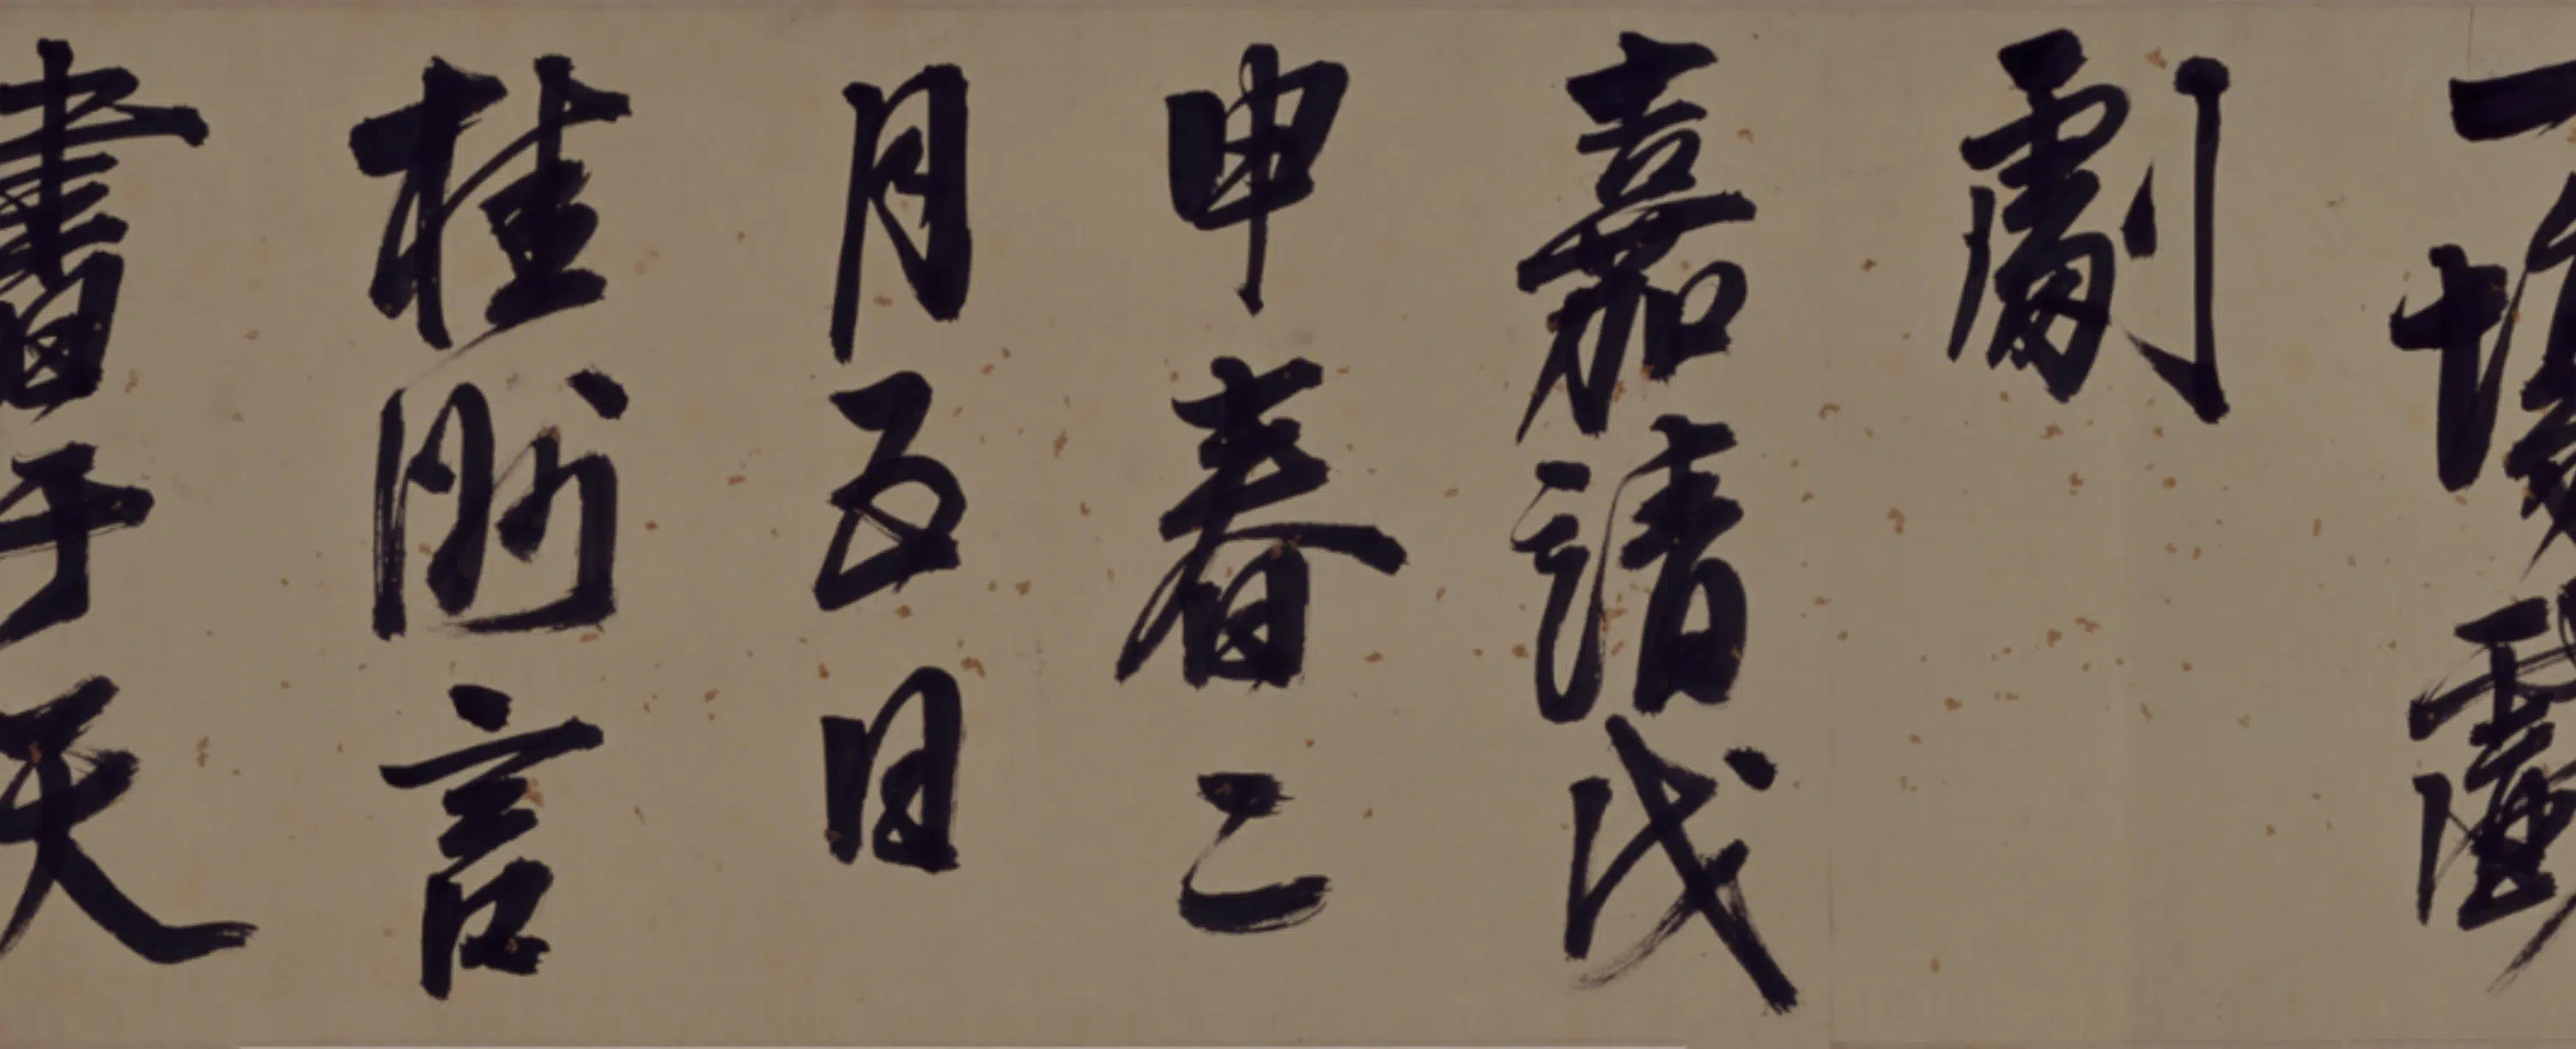 一場戲
劇
嘉靖戊
申春二
月五日
桂洲言
書于天